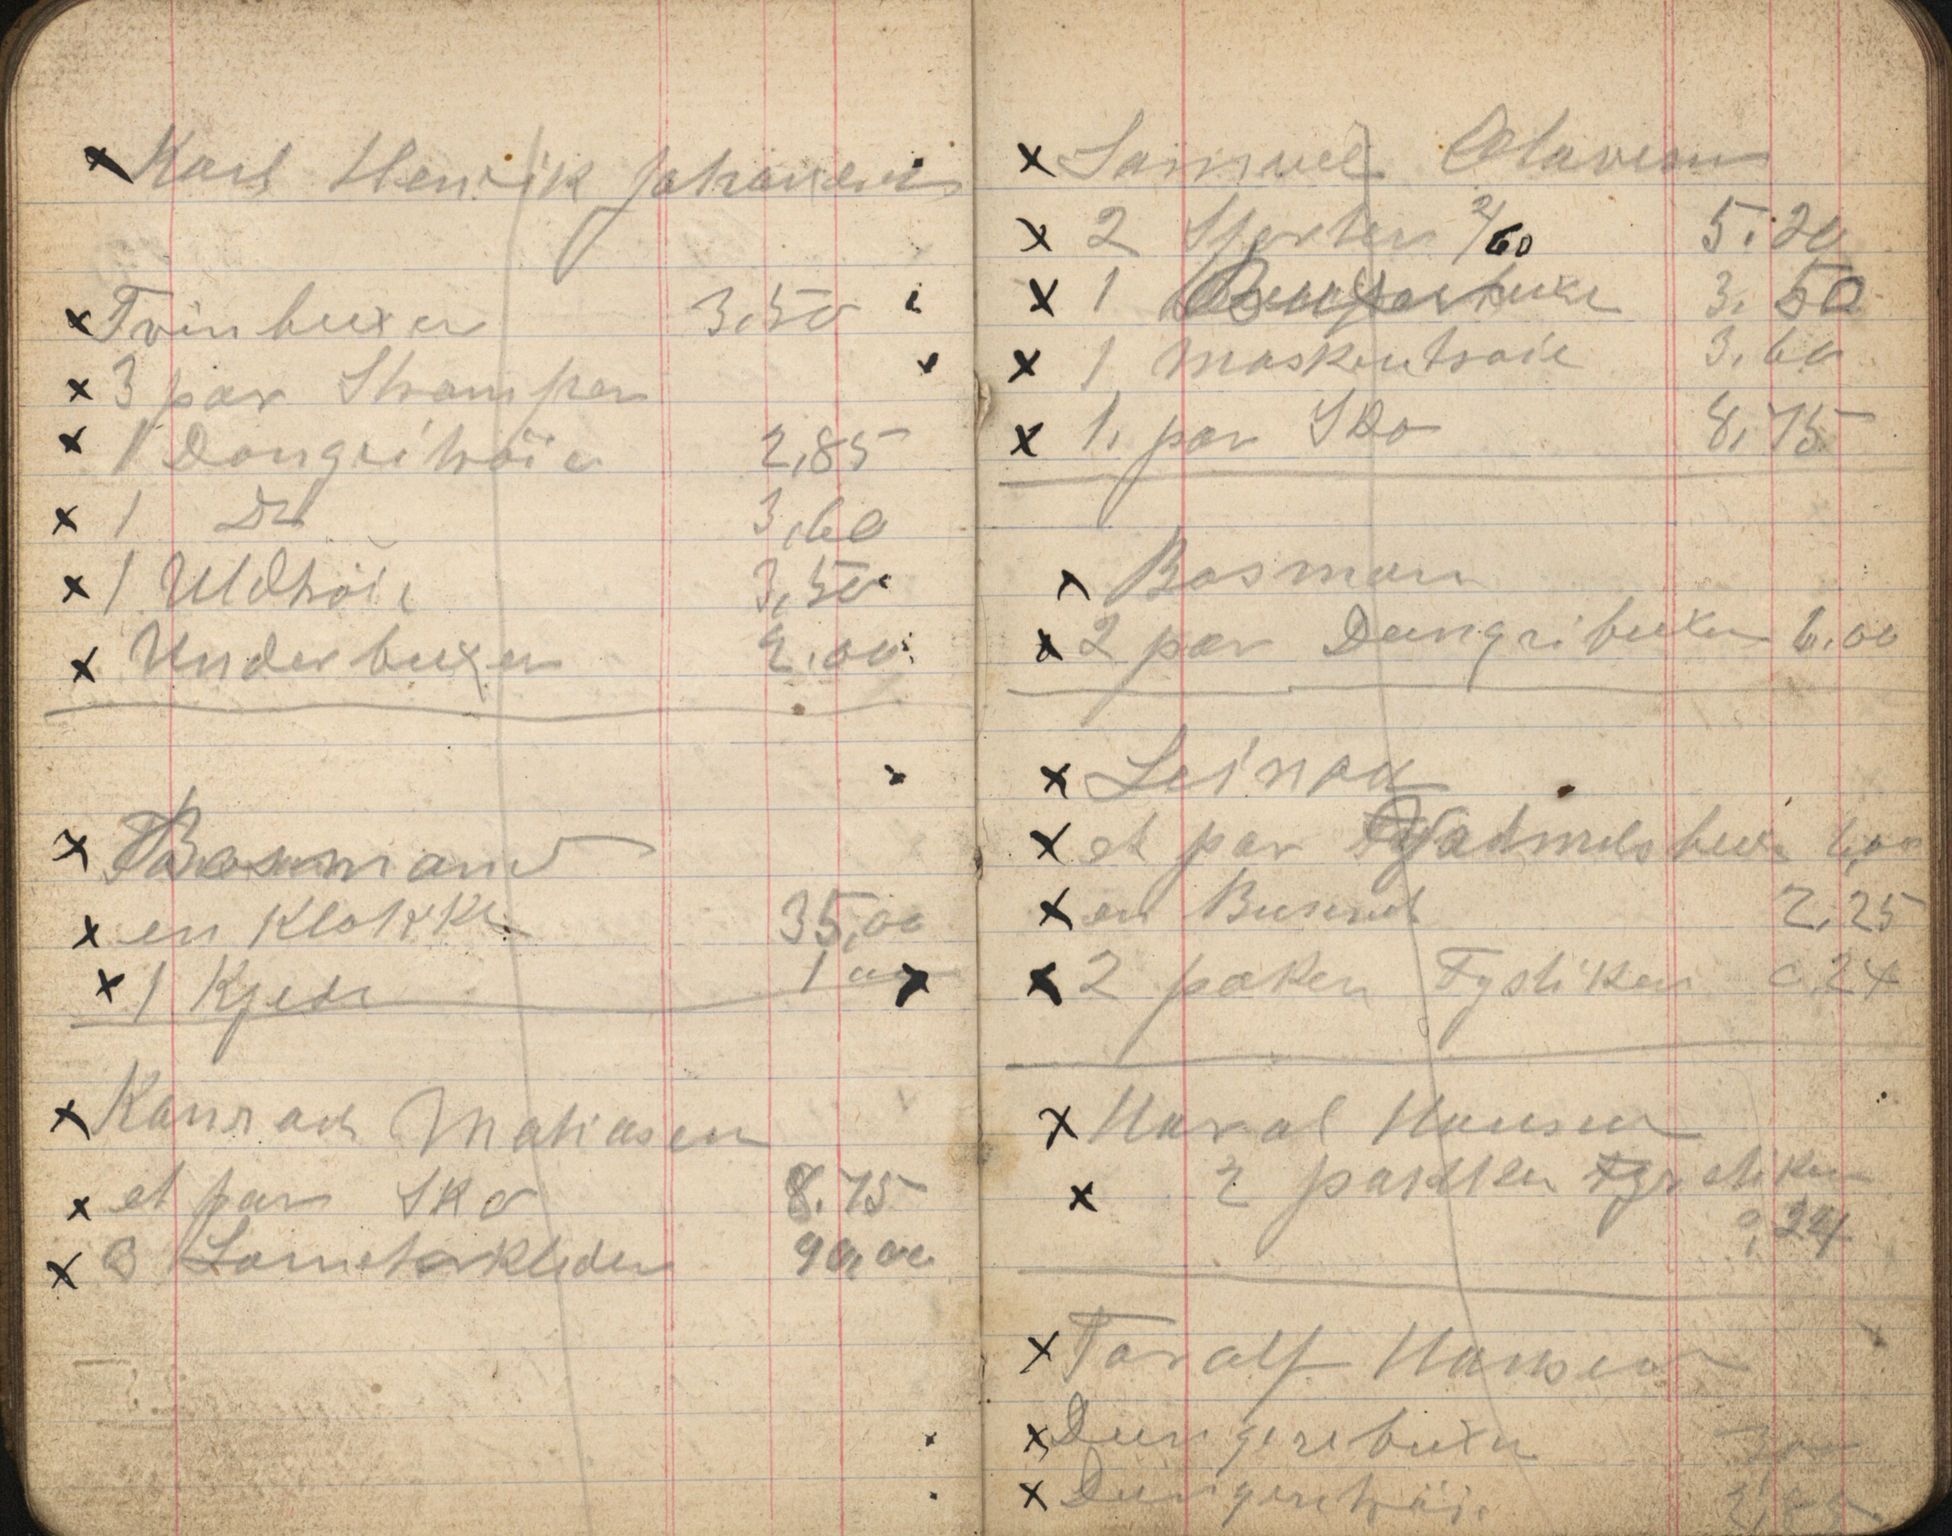 x Karl Henrik Johansen
x Trinbuxer 3,50
x 3 par Strømper
x 1 Dongritröie 2,85
x 1 Do 3,60
x 1 Uldtröie 3,50
x Underbuxer 2,00
x Bosmand
x en Klokke 35,00
x 1 Kjede 1 00
x Konrad Matiasen
x et par Sko 8.75
x Lometørkleder
x Samuel Olavesen
x 2 Sjorter 2/60 5.20
x 1 3.50
x 1 Maskentroie 3,60
x 1. par Sko 8,75
x Bosman
x 2 par Dungribuxer 6.00
x Leinad
x et par Vadmelsbuxe 6,00
x en Buserul 2,25
x 2 paker Fystiker 0,24
x Haral Hansen
x 2 pakker Fyrstiker
0,24
x Toralf Hansen
x Dungerebuxer 3,00
x Dungeretröie 2,85